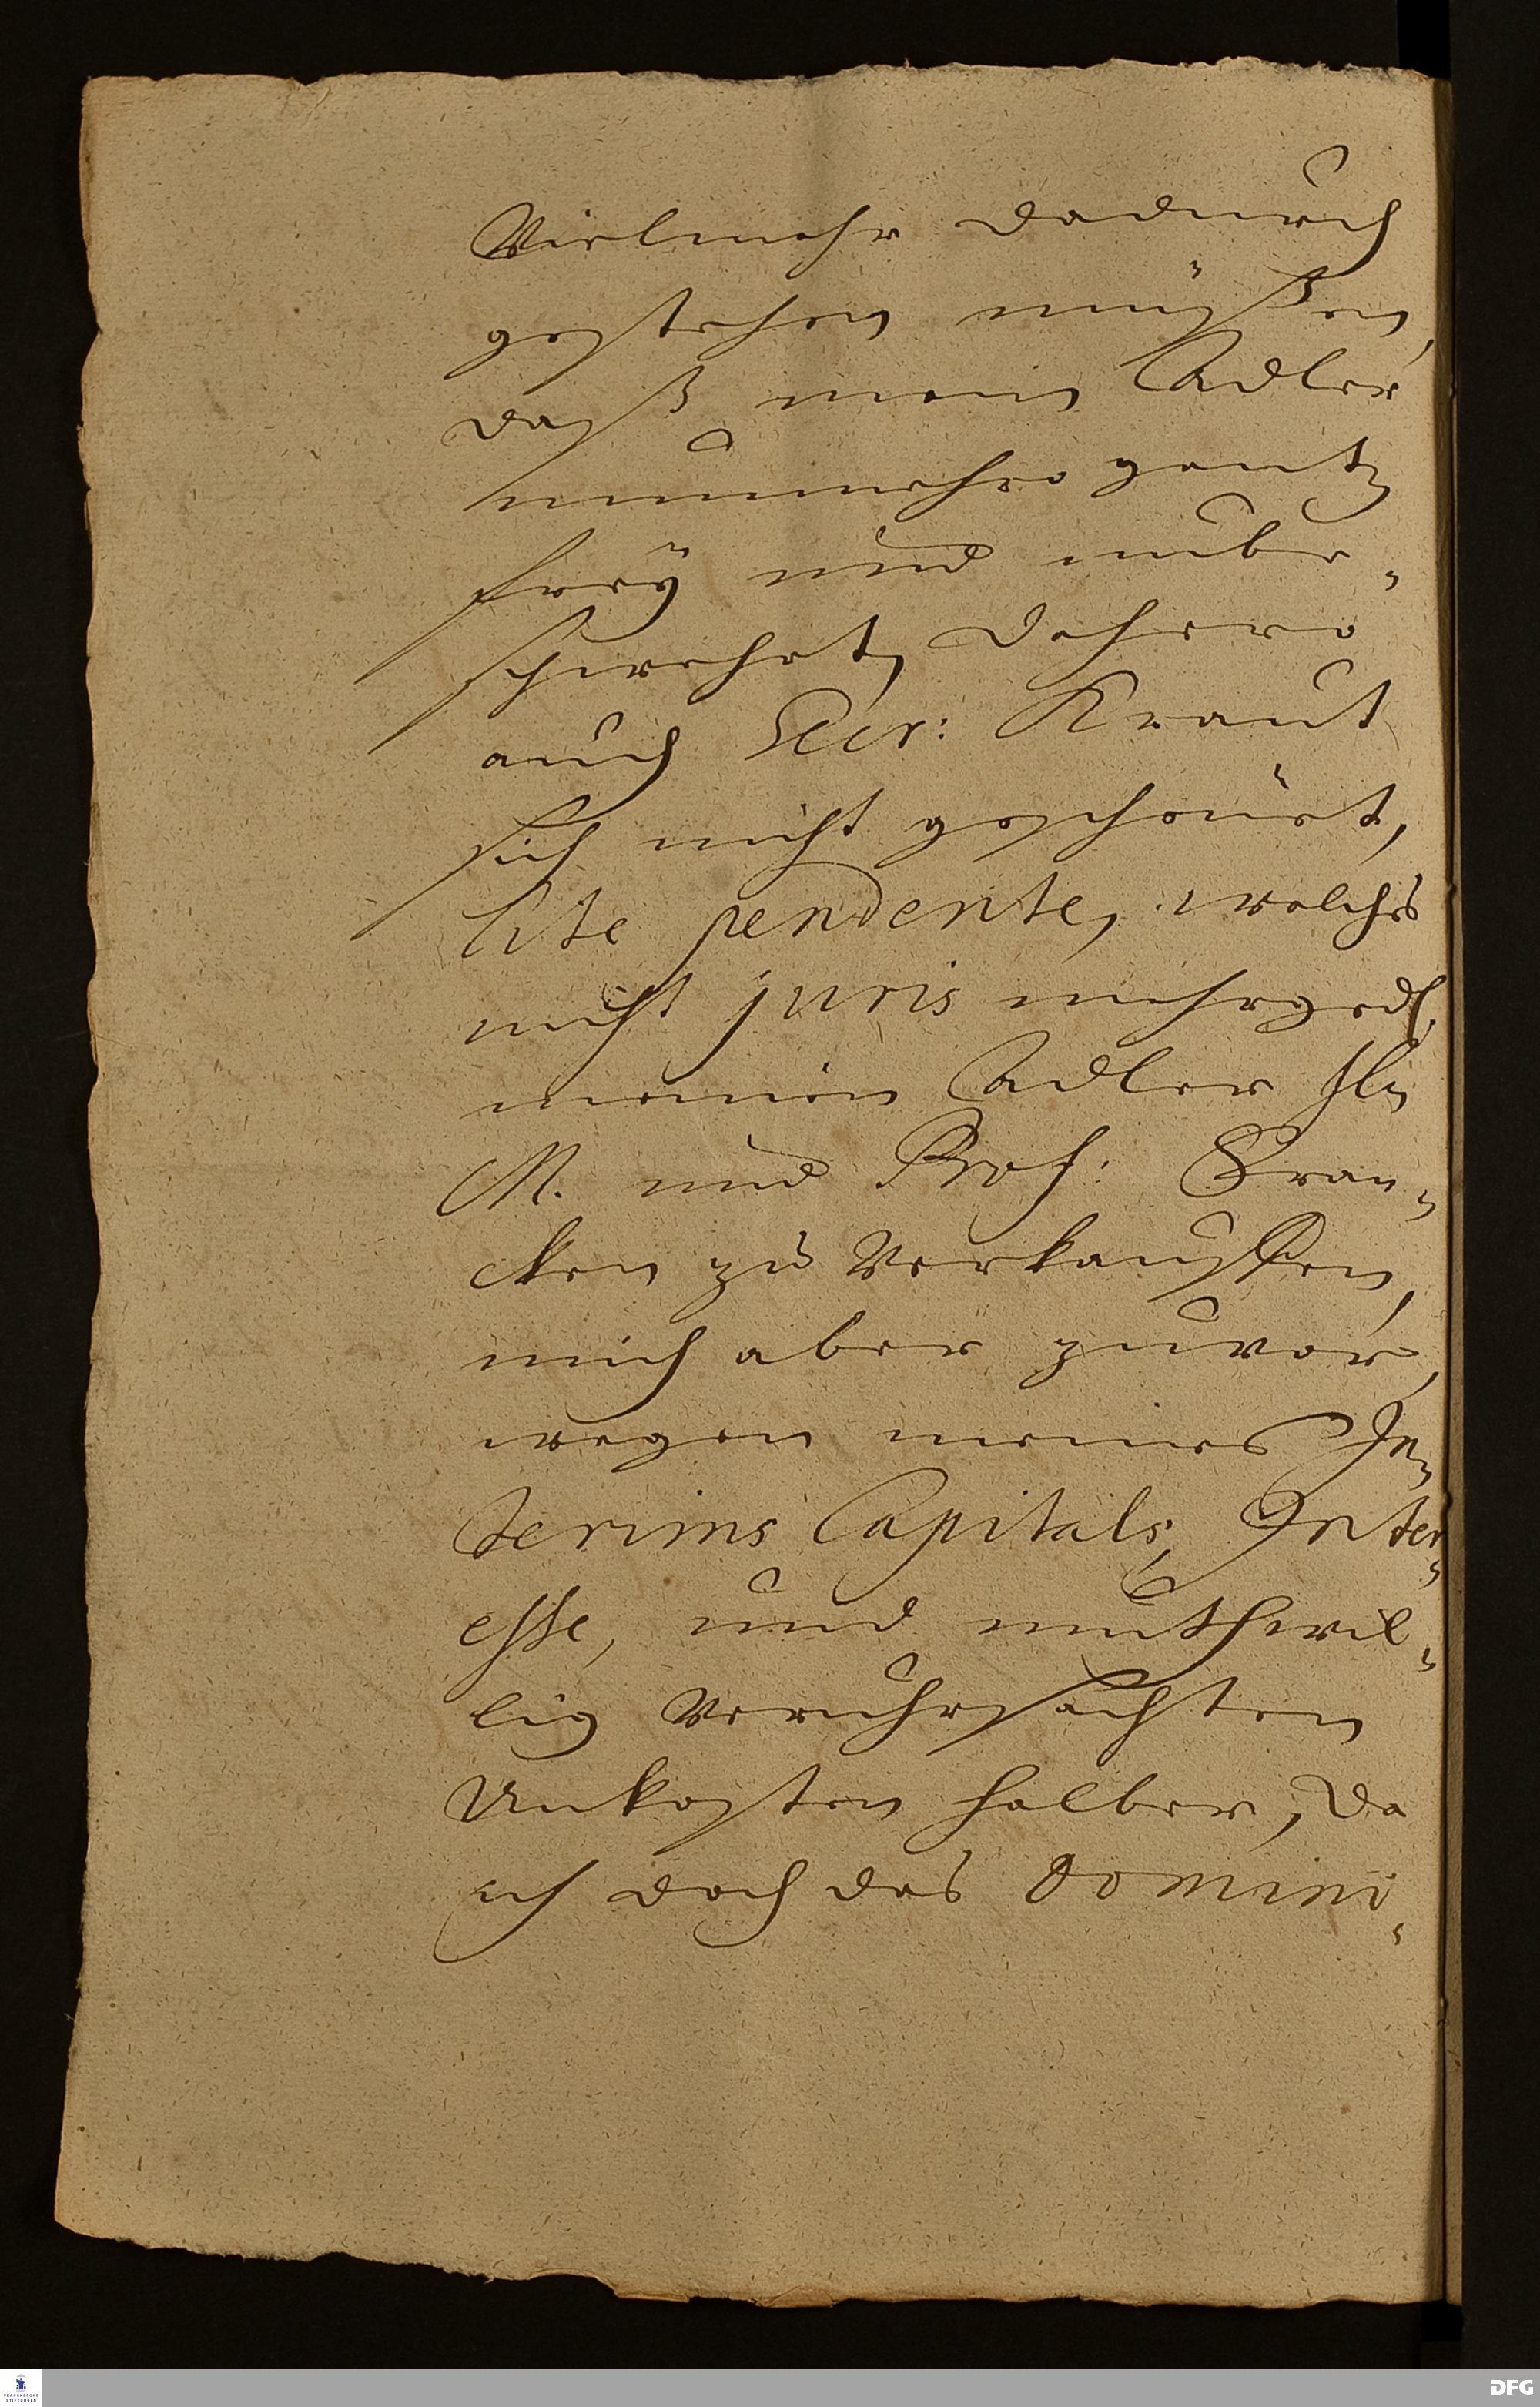 Vielmehr dadurch
gestehen müßen,
daß mein Adler
nunmehro gantz
frey und unbe-
schwehrt, dahero
auch Secr: Kraut
sich nicht gescheuet,
lite pendente, welches
nicht juris mehrged.
meinen Adler Hn
M. und Prof: Fran-
cken zu Verkauffen,
mich aber zuvor,
wegen meines In-
terims Capitals, Inter-
esse, und muthwil-
lig Veruhrsachten
Unkosten halber, da
ich doch das Domini-
FRANCKESCHE
STIFTUNGEN
DFG